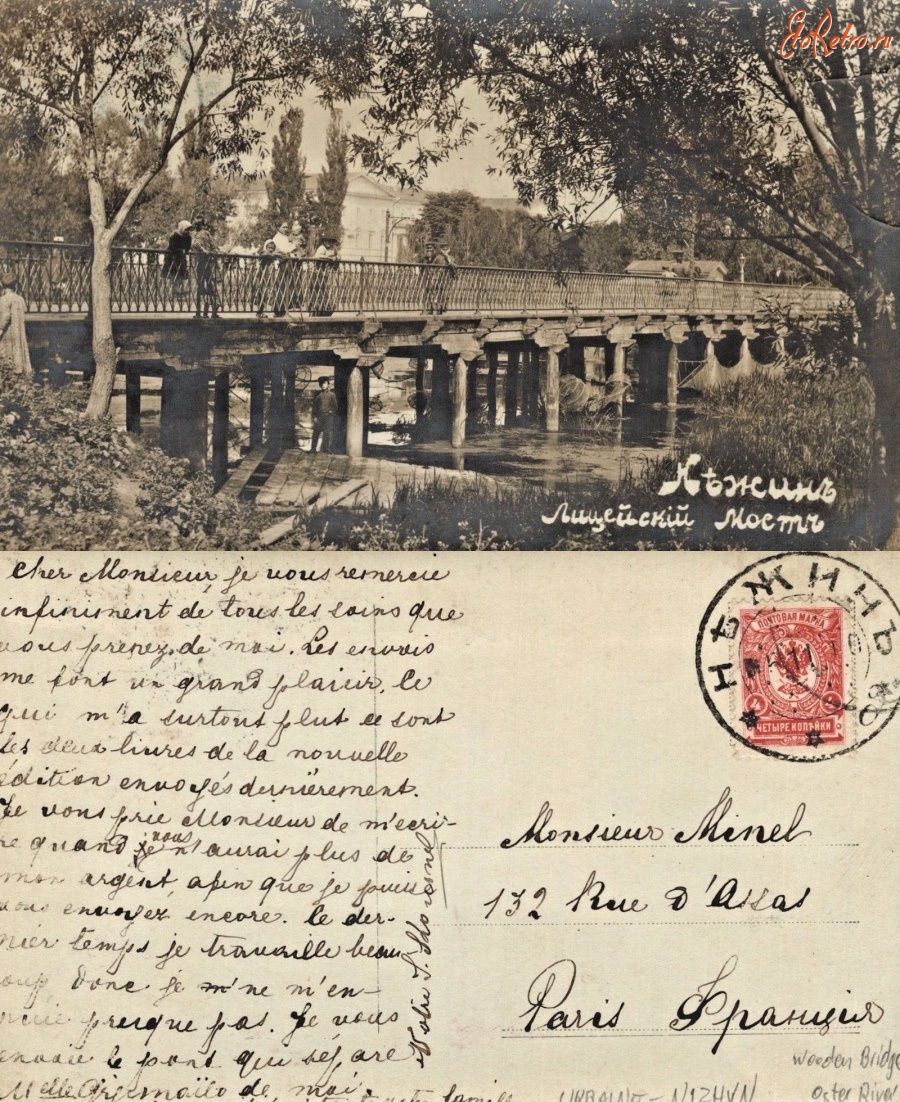 EtoRetro.ru
Нѣжинъ
Лицейскій Мостъ
Cher Monsieur, je vous remercie
infiniment de tous les soins que
vous prenez de moi. Les envois
me font un grand plaisir. Ce
qui m'a surtout plut ce sont
les deux livres de la nouvelle
édition envoyés dernièrement.
Je vous prie Monsieur de m'ecri-
re quand vous n'aurai plus de
mon argent, afin que je puis
vous envoyez encore. Le der-
nier temps je travaille beau
coup, donc je m'ne m'en-
nuie presque pas. Je vous
envoie le pont qui séfare
Melle de moi.
Votre S.
НѢЖИНЪ
ПОЧТОВАЯ МАРКА
4
ЧЕТЫРЕ КОПѢЙКИ
Monsieur Minel
132 Rue d'Assas
Paris Франція
Wooden Bridge
Oster River
UKRAINE - NIZHYN